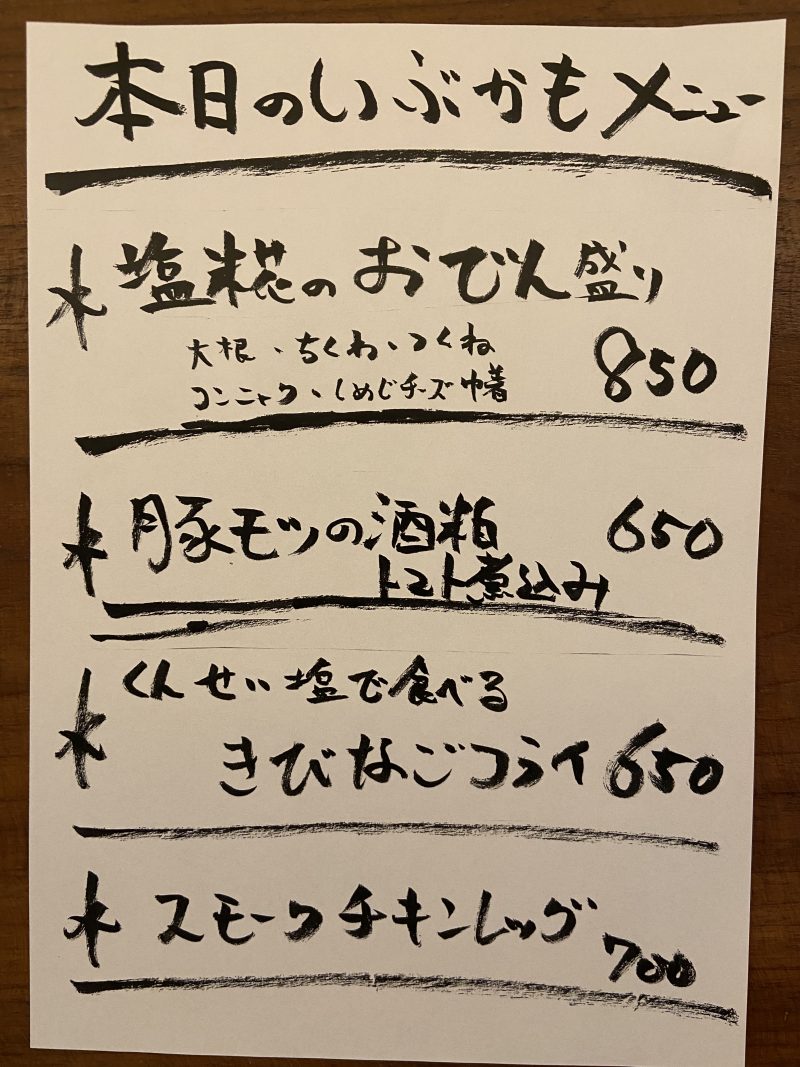 本日のいぶかもメニュー
塩糀のおでん盛り
大根、ちくわ、つくね
コンニャク、しめじチーズ巾着
850
豚モツの酒粕 650
トマト煮込み
くんせい塩で食べる
きびなごフライ 650
スモークチキンレッグ
700